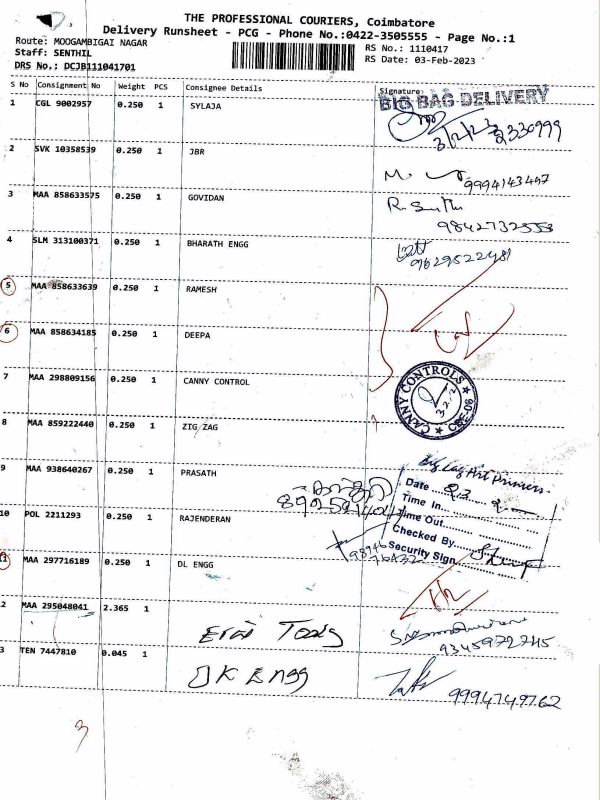 THE PROFESSIONAL COURIERS, Coimbatore
Delivery Runsheet - PCG - Phone No.:0422-3505555 - Page No.:1
Route: MOOGAMBIGAI NAGAR
RS No.: 1110417
Staff: SENTHIL
RS Date: 03-Feb-2023
DRS No.: DCJB111041701
S No Consignment No Weight PCS Consignee Details Signature
BIG BAG DELIVERY
1 CGL 9002957 0.250 1 SYLAJA
3/2/23
2 SVK 10358539 0.250 1 JBR
M.
9994143447
3 MAA 858633575 0.250 1 GOVIDAN
9842732553
4 SLM 313100371 0.250 1 BHARATH ENGG
9629522481
5 MAA 858633639 0.250 1 RAMESH
6 MAA 858634185 0.250 1 DEEPA
7 MAA 298809156 0.250 1 CANNY CONTROL
CANNY CONTROLS ★ CBE-06 ★
8 MAA 859222440 0.250 1 ZIG ZAG
9 MAA 938640267 0.250 1 PRASATH
Date
Time In
Time Out
Checked By
Security Sign
10 POL 2211293 0.250 1 RAJENDERAN
11 MAA 297716189 0.250 1 DL ENGG
2 MAA 295048041 2.365 1
9345972745
3 TEN 7447810 0.045 1 JK Engg
9994749762
3